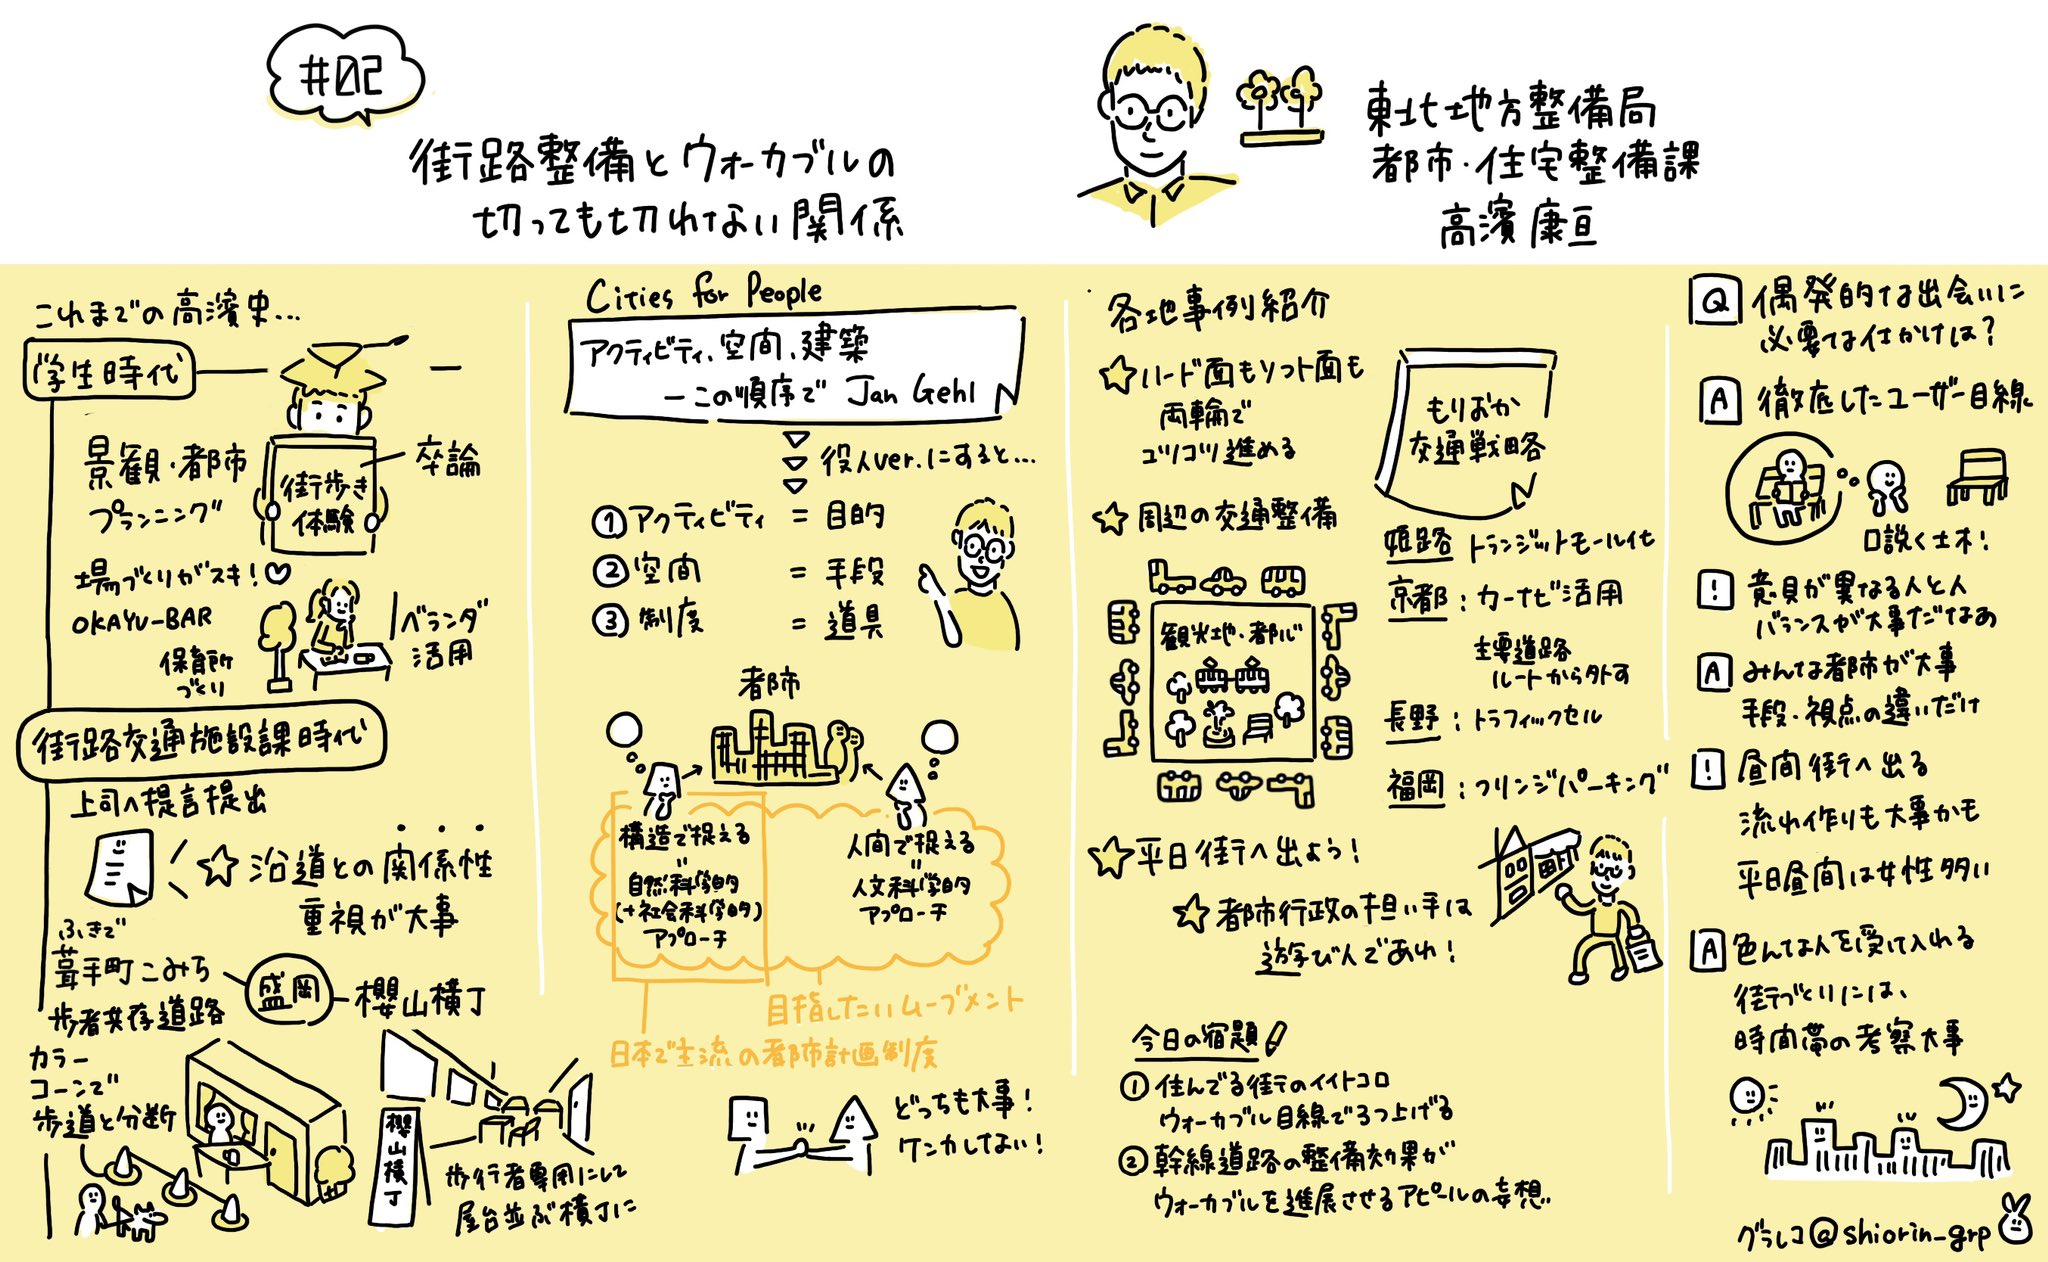 #02
街路整備とウォーカブルの
切っても切れない関係
東北地方整備局
都市・住宅整備課
高濱康亘
これまでの高濱史...
学生時代
景観・都市
プランニング
街歩き
体験
卒論
場づくりがスキ!
OKAYU-BAR
保育所
づくり
ベランダ
活用
街路交通施設課時代
上司へ提言提出
沿道との関係性
重視が大事
ふきで
葺手町こみち
歩者共存道路
盛岡
櫻山横丁
カラー
コーンで
歩道と分断
櫻山横丁
歩行者専用にして
屋台並ぶ横丁に
Cities for People
アクティビティ、空間、建築
ーこの順序で Jan Gehl
役人ver.にすると...
① アクティビティ = 目的
② 空間 = 手段
③ 制度 = 道具
都市
構造で捉える
=
自然科学的
(+社会科学的)
アプローチ
人間で捉える
=
人文科学的
アプローチ
目指したいムーブメント
日本で主流の都市計画制度
どっちも大事!
ケンカしない!
各地事例紹介
ハード面もソフト面も
両輪で
コツコツ進める
もりおか
交通戦略
周辺の交通整備
観光地・都心
姫路 トランジットモール化
京都:カーナビ活用
主要道路
ルートから外す
長野:トラフィックセル
福岡:フリンジパーキング
平日街へ出よう!
都市行政の担い手は
遊び人であれ!
今日の宿題
① 住んでる街のイイトコロ
ウォーカブル目線で3つ上げる
② 幹線道路の整備効果が
ウォーカブルを進展させるアピールの妄想
Q 偶発的な出会いに
必要な仕かけは?
A 徹底したユーザー目線
口説く土木!
! 意見が異なる人と人
バランスが大事だなあ
A みんな都市が大事
手段・視点の違いだけ
! 昼間街へ出る
流れ作りも大事かも
平日昼間は女性多い
A 色んな人を受け入れる
街づくりには、
時間帯の考察大事
グラレコ@shiorin_grp